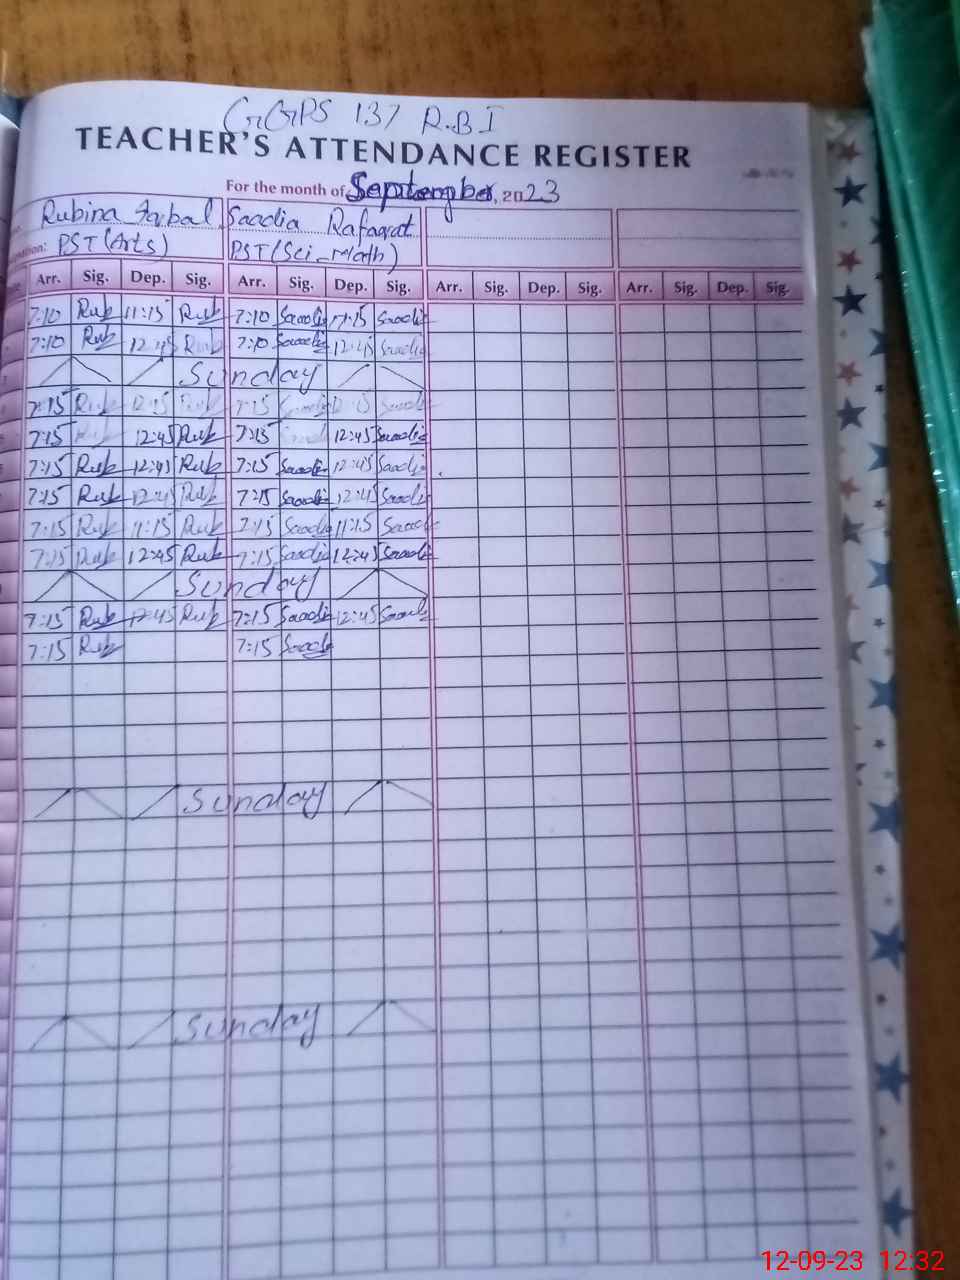 GGPS 137 R.B I
TEACHER'S ATTENDANCE REGISTER
For the month of September, 2023
Rubina Iqbal Saadia Rafaqat
PST (Arts) PST (Sci_Math)
Arr. Sig. Dep. Sig. Arr. Sig. Dep. Sig. Arr. Sig. Dep. Sig. Arr. Sig. Dep. Sig.
7:10 Rub 11:15 Rub 7:10 Saadia 11:15 Saadia
7:10 Rub 12:45 Rub 7:10 Saadia 12:45 Saadia
Sunday
7:15 Rub 12:45 Rub 7:15 Saadia
7:15 12:45 Rub 7:15 12:45 Saadia
7:15 Rub 12:45 Rub 7:15 Saadia 12:45 Saadia
7:15 Rub 12:45 Rub 7:15 Saadia 12:45 Saadia
7:15 Rub 11:15 Rub 7:15 Saadia 11:15 Saadia
7:15 Rub 12:45 Rub 7:15 Saadia 12:45 Saadia
Sunday
7:15 Rub 12:45 Rub 7:15 Saadia 12:45 Saadia
7:15 Rub 7:15 Saadia
Sunday
Sunday
12-09-23 12:32